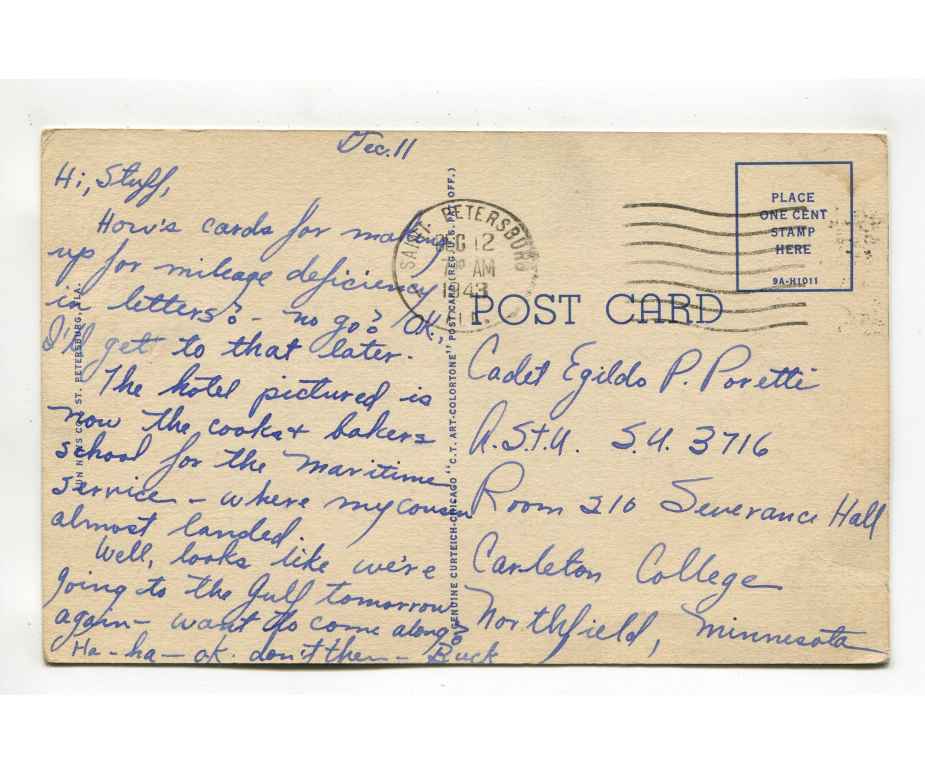 Dec. 11
Hi, Stuff,
How's cards for making
up for mileage deficiency
in letters? - no go? OK,
I'll get to that later.
The hotel pictured is
now the cooks & bakers
school for the maritime
service - where my cousin
almost landed.
Well, looks like we're
going to the Gulf tomorrow
again - want to come along?
Ha-ha - ok. don't then - Buck
SAINT PETERSBURG
DEC 12
7 AM
1943
PLACE
ONE CENT
STAMP
HERE
9A-H1011
POST CARD
Cadet Egildo P. Poretti
A.S.T.U. S.U. 3716
Room 210 Severance Hall
Carleton College
Northfield, Minnesota
SUN NEWS CO., ST. PETERSBURG, FLA.
GENUINE CURTEICH-CHICAGO "C.T. ART-COLORTONE" POST CARD (REG. U.S. PAT. OFF.)